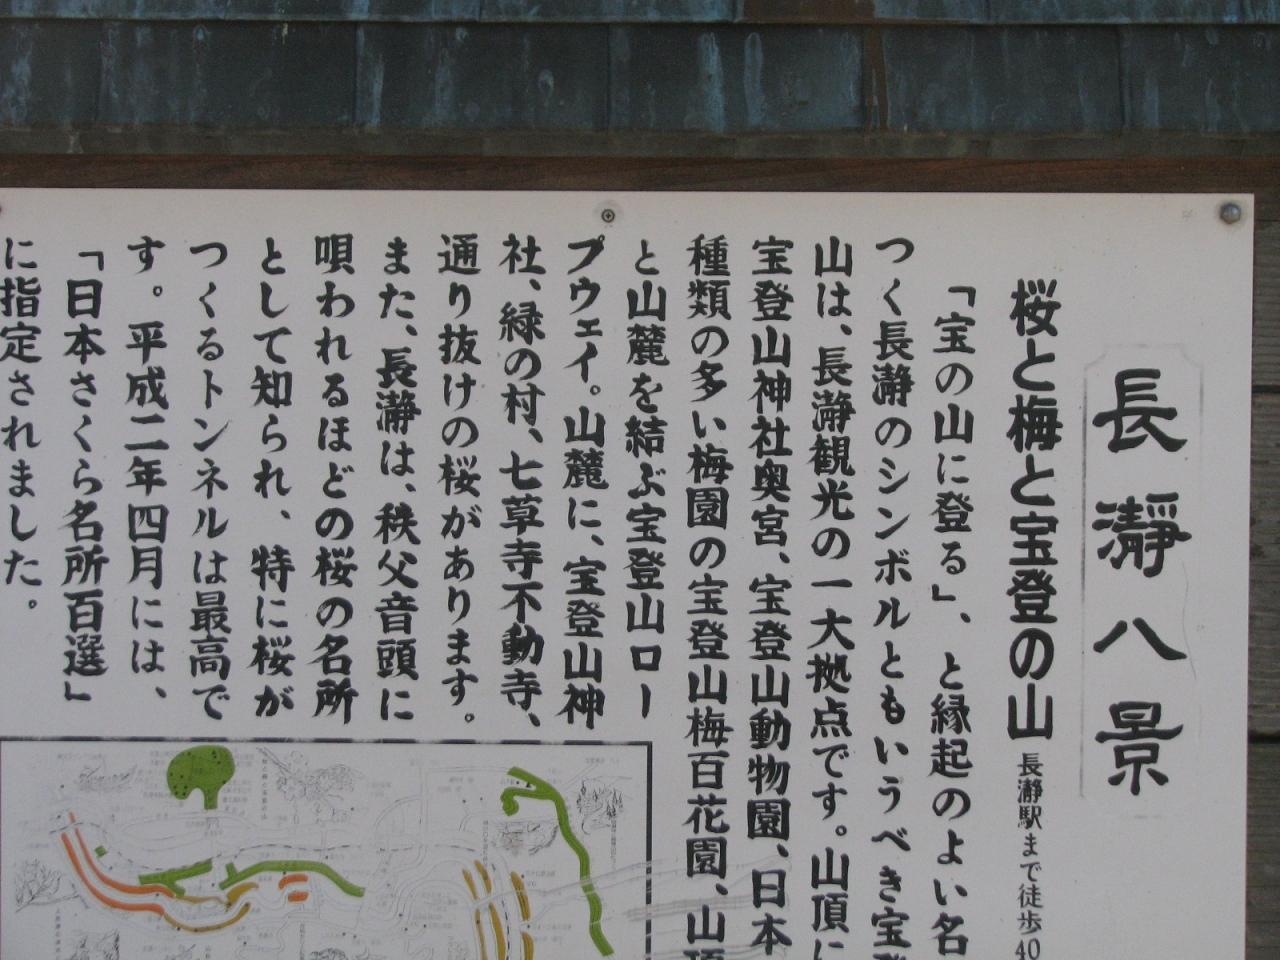 長瀞八景
桜と梅と宝登の山 長瀞駅まで徒歩40
「宝の山に登る」、と縁起のよい名
つく長瀞のシンボルともいうべき宝登
山は、長瀞観光の一大拠点です。山頂に
宝登山神社奥宮、宝登山動物園、日本
種類の多い梅園の宝登山梅百花園、山頂
と山麓を結ぶ宝登山ロー
プウェイ。山麓に、宝登山神
社、緑の村、七草寺不動寺、
通り抜けの桜があります。
また、長瀞は、秩父音頭に
唄われるほどの桜の名所
として知られ、特に桜が
つくるトンネルは最高で
す。平成二年四月には、
「日本さくら名所百選」
に指定されました。